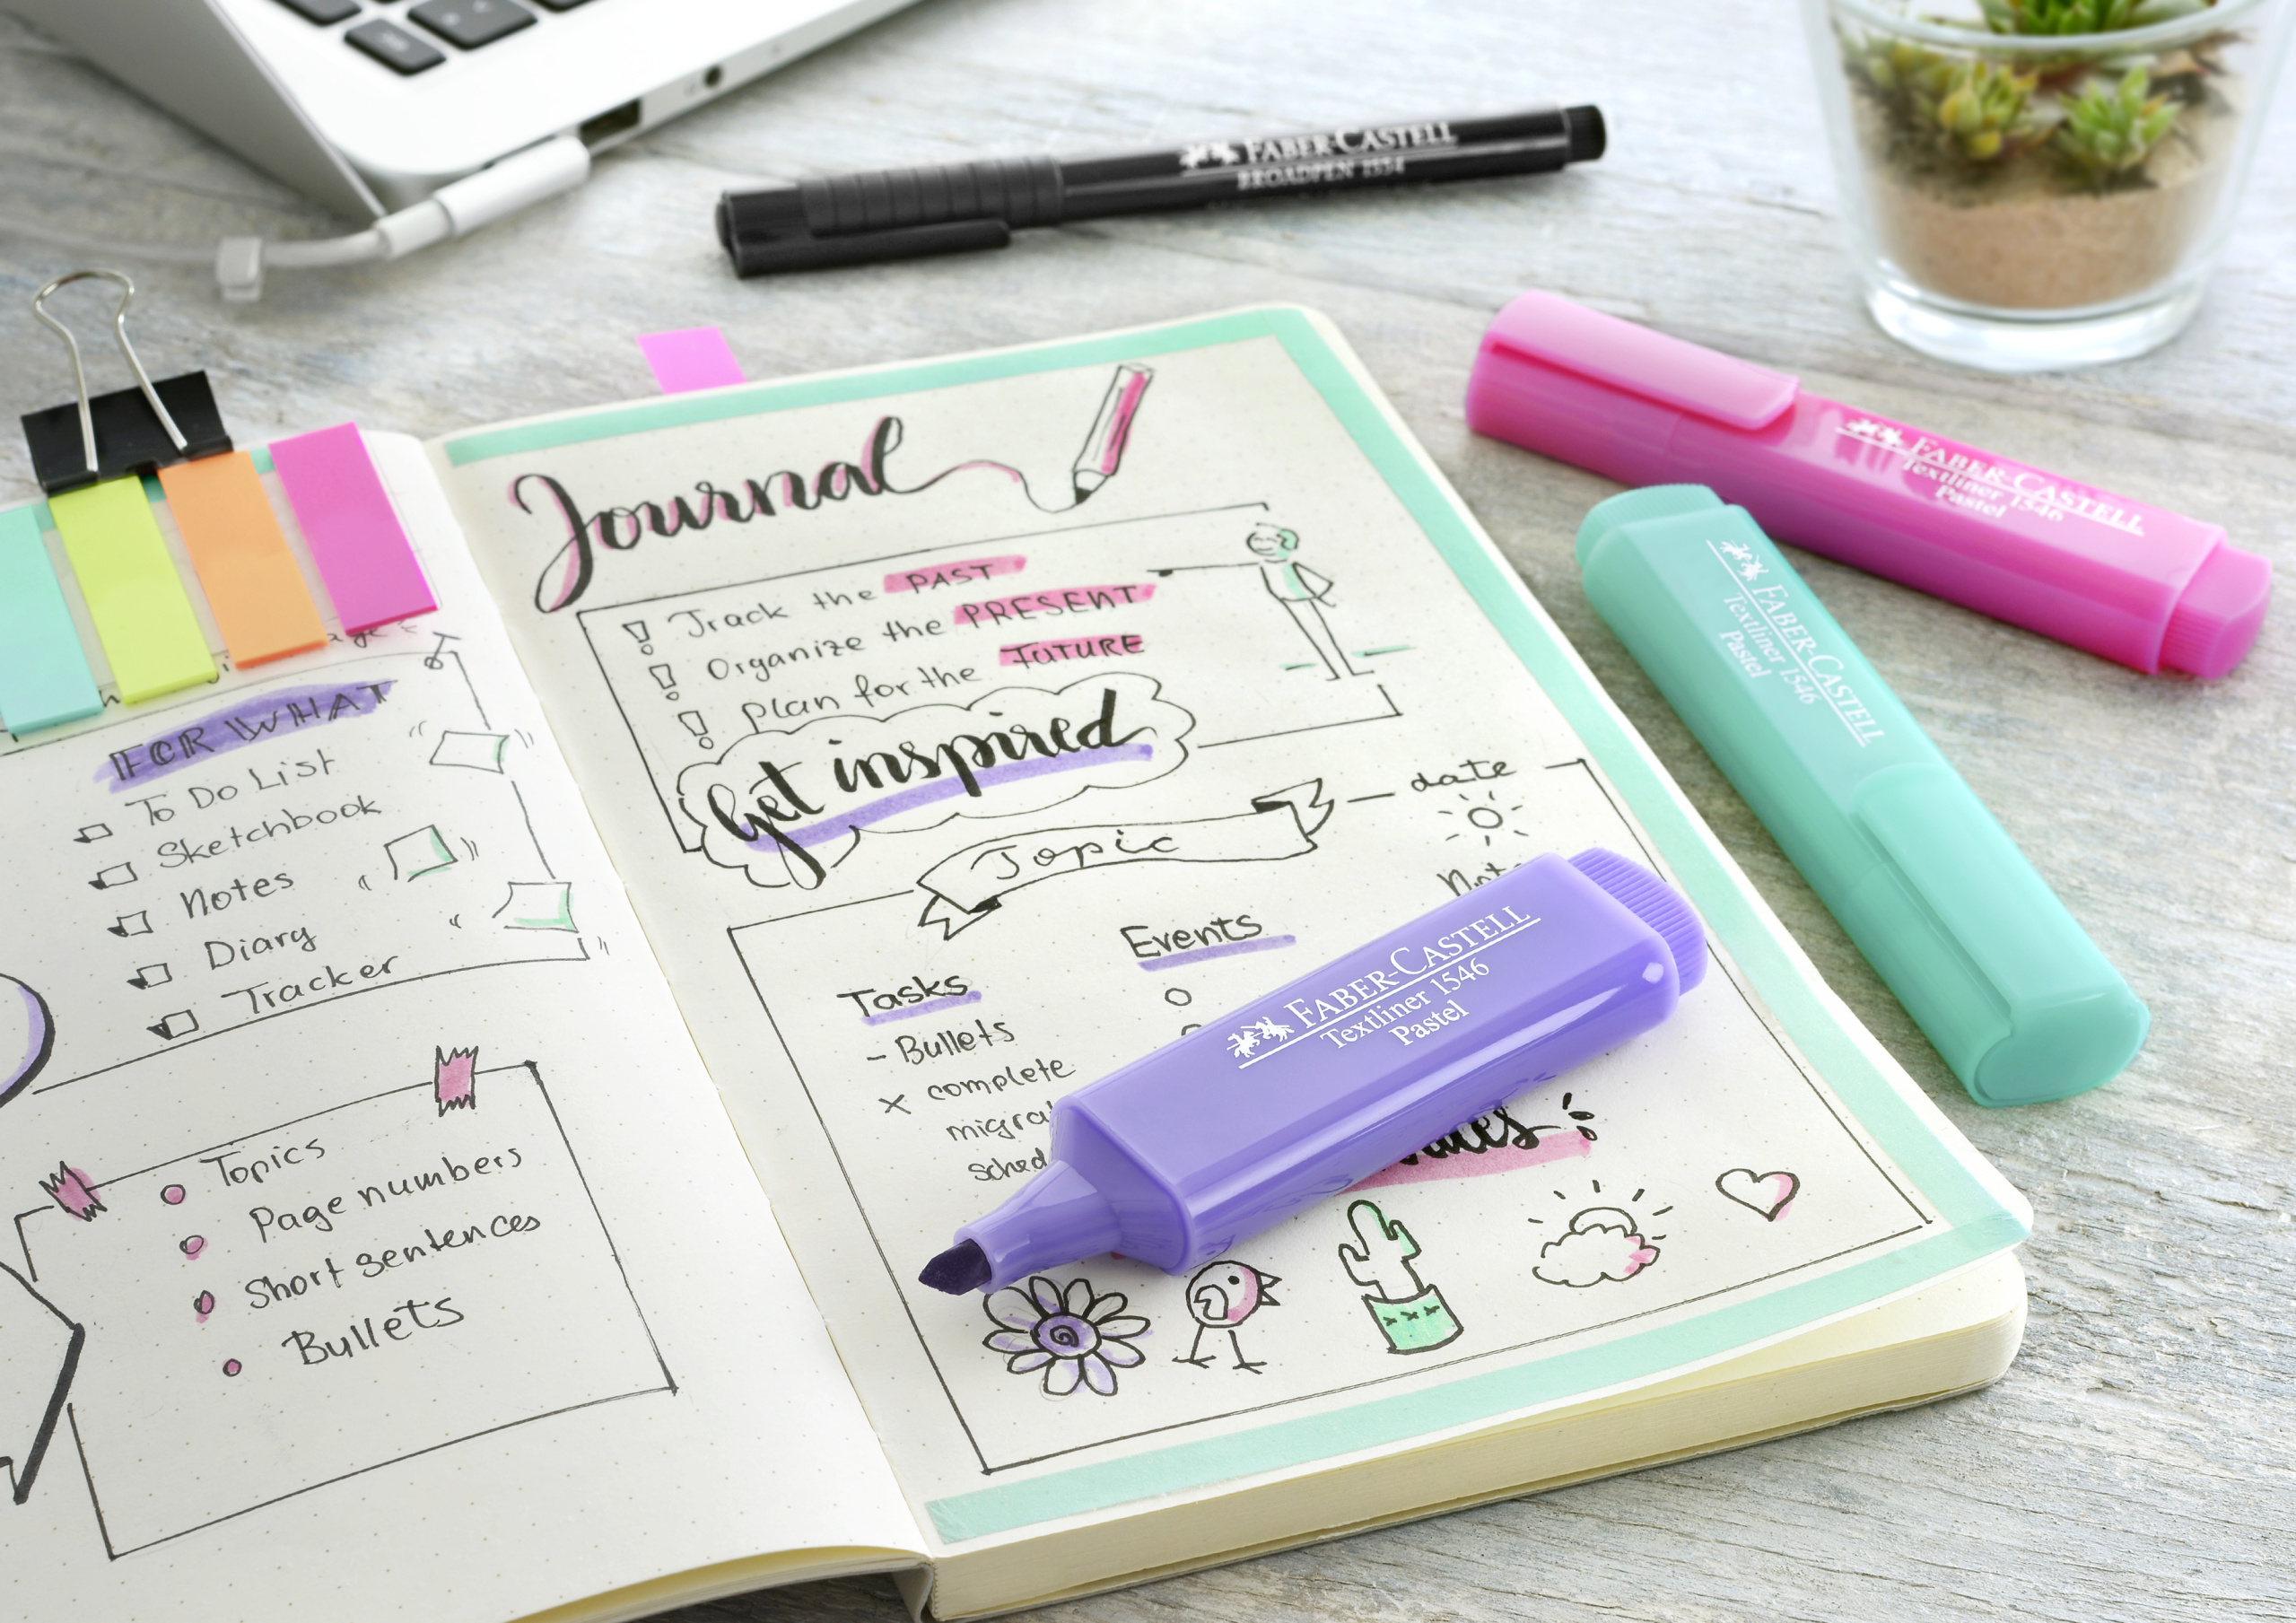 FABER-CASTELL
BROADPEN 1554
FABER-CASTELL
Textliner 1546
Pastel
FABER-CASTELL
Textliner 1546
Pastel
FABER-CASTELL
Textliner 1546
Pastel
FOR WHAT
To Do List
Sketchbook
Notes
Diary
Tracker
Topics
Page numbers
Short sentences
Bullets
Journal
Track the PAST
Organize the PRESENT
plan for the FUTURE
Get inspired
Topic
date
Tasks
- Bullets
x complete
Events